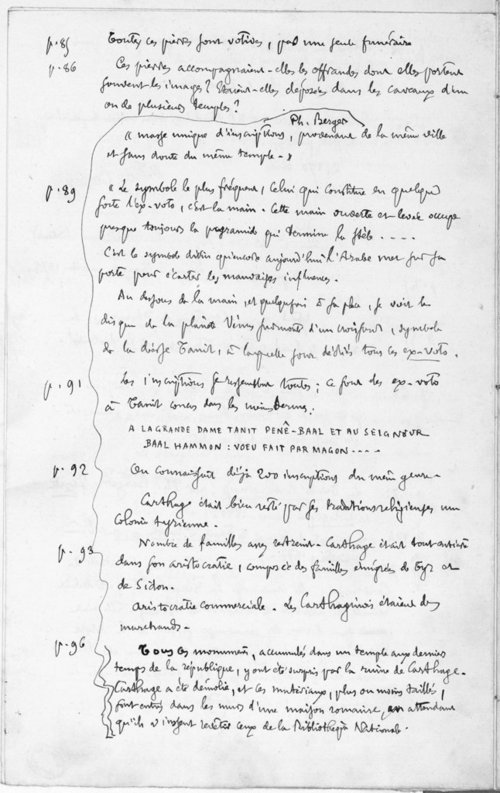 p. 85 Toutes ces pierres sont votives, pas une seule funéraire
p. 86 Ces pierres accompagnaient-elles les offrandes dont elles portent
souvent les images? Étaient-elles déposées dans les caveaux d'un
ou de plusieurs temples?
Ph. Berger
« masse unique d'inscriptions, provenant de la même ville
et sans doute du même temple. »
p. 89 « Le symbole le plus fréquent, celui qui constitue en quelque
sorte l'ex-voto, c'est la main. Cette main ouverte et levée occupe
presque toujours la pyramide qui termine la stèle ....
C'est le symbole divin qu'encore aujourd'hui l'Arabe met sur sa
porte pour écarter les mauvaises influences.
Au dessous de la main, et quelquefois à sa place, se voit le
disque de la planète Vénus surmonté d'un croissant, symbole
de la déesse Tanit, à laquelle sont dédiés tous ces ex-voto.
p. 91 Les inscriptions se ressemblent toutes; ce sont des ex-voto
à Tanit conçus dans les mêmes termes:
A LA GRANDE DAME TANIT PENÊ-BAAL ET AU SEIGNEUR
BAAL HAMMON: VOEU FAIT PAR MAGON....
p. 92 On connaissait déjà 200 inscriptions du même genre.
Carthage était bien resté par ses traditions religieuses une
colonie tyrienne.
p. 93 Nombre de familles assez restreint. Carthage était tout entière
dans son aristocratie, composée des familles émigrées de Tyr et
de Sidon.
Aristocratie commerciale. Les Carthaginois étaient des
marchands.
p. 96 Tous ces monuments, accumulés dans un temple aux derniers
temps de la république, y ont été surpris par la ruine de Carthage.
Carthage a été démolie, et ces matériaux, plus ou moins taillés,
sont entrés dans les murs d'une maison romaine, en attendant
qu'ils vinssent revêtir ceux de la Bibliothèque Nationale.